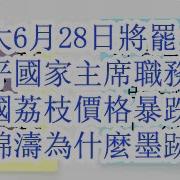 大6月28日將罷
平國家主席職務
國荔枝價格暴跌
錦濤為什麼墨跡